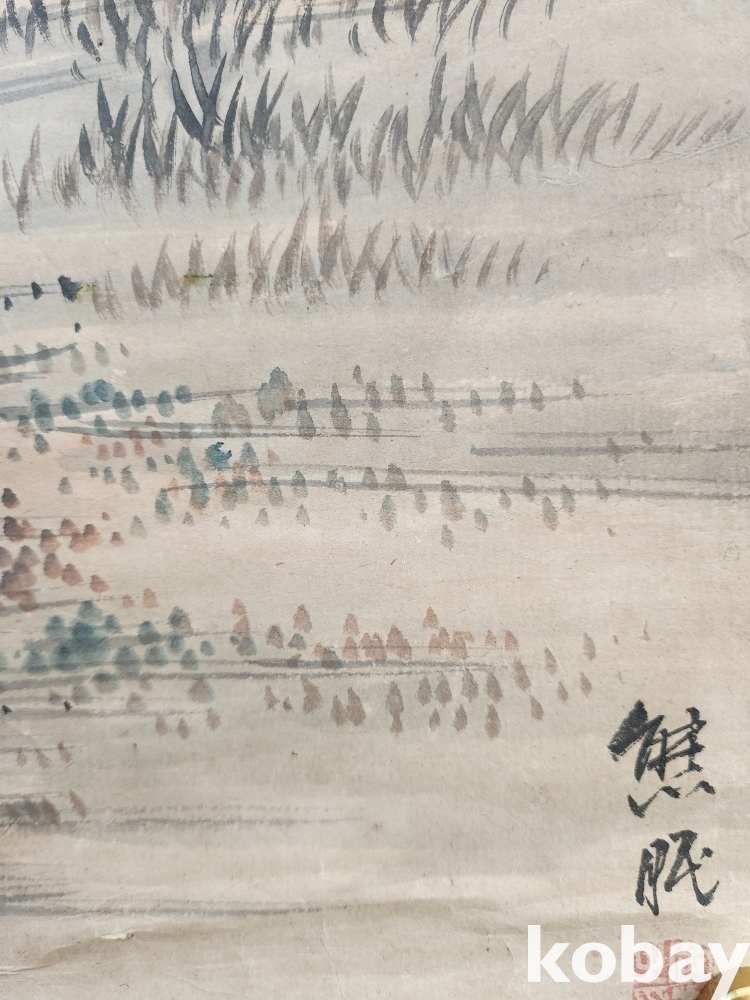 熊
眠
kobay